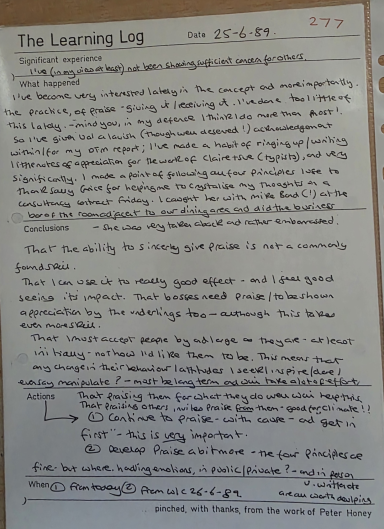 277
The Learning Log Date 25-6-89.
Significant experience
I've (in my view at least) not been showing sufficient concern for others.
What happened
I've become very interested lately in the concept and more importantly,
the practice, of praise - giving it / receiving it. I've done too little of
this lately. - mind you, in my defence I think I do more than most!
So I've given Val a lavish (though well deserved!) acknowledgement
within/for my OTM report; I've made a habit of ringing up/writing
little notes of appreciation for the work of Claire & Sue (typists), and very
significantly. I made a point of following our four principles here to
thank Sally Grice for helping me to crystalise my thoughts on a
consultancy contract Friday. I caught her with Mike Band (!) at the
bar of the room adjacent to our dining area and did the business
Conclusions - she was very taken aback and rather embarrassed.
That the ability to sincerely give praise is not a commonly
found skill.
That I can use it to really good effect - and I feel good
seeing its impact. That bosses need praise / to be shown
appreciation by the underlings too - although this takes
even more skill.
That I must accept people by and large as they are - at least
initially - not how I'd like them to be. This means that
any change in their behaviour / attitudes I seek, inspire (dare I
even say manipulate? - must be long term and will take a lot of effort.
Actions That praising them for what they do well will help this.
That praising others invites praise from them - good for climate!!
① Continue to praise - with cause - and get in
first" - this is very important.
② Develop praise a bit more - the four principles are
fine - but where, handling emotions, in public/private? - and in person
When ① from today ② From w/c 26-6-89. v. written are
all worth developing.
pinched, with thanks, from the work of Peter Honey